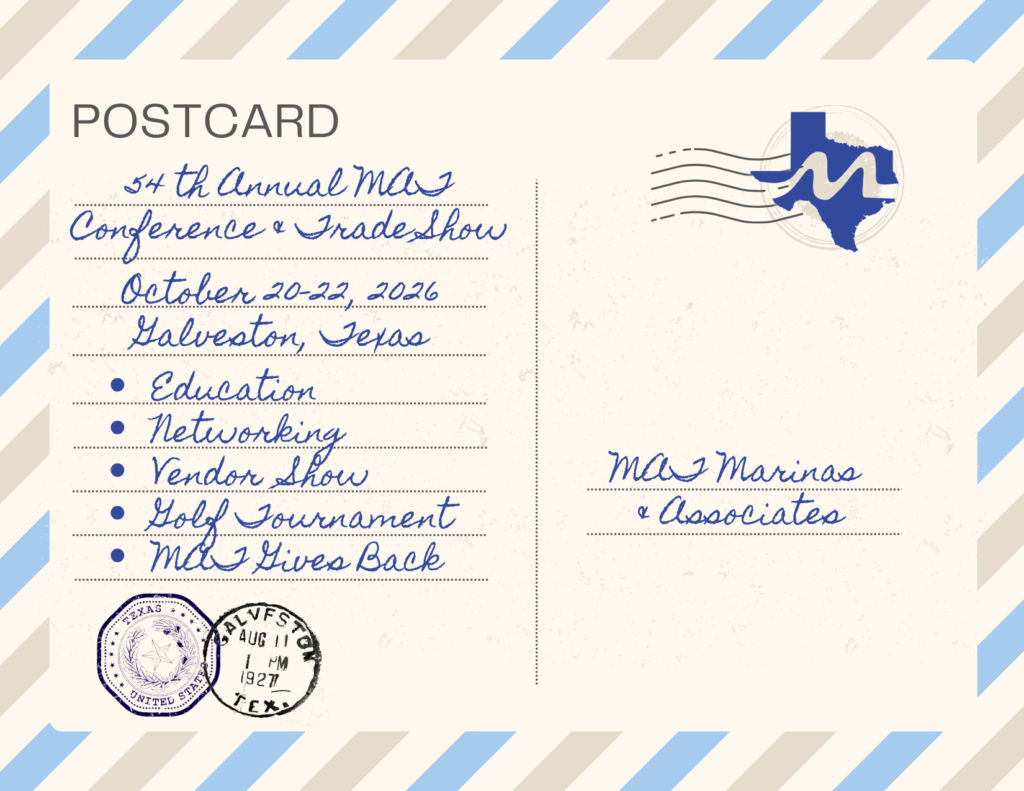 POSTCARD
54th Annual MAT
Conference & Trade Show
October 20-22, 2026
Galveston, Texas
• Education
• Networking
• Vendor Show
• Golf Tournament
• MAT Gives Back
M
MAT Marinas
& Associates
TEXAS
UNITED STATES
GALVESTON
AUG 11
1 PM
1927
TEX.